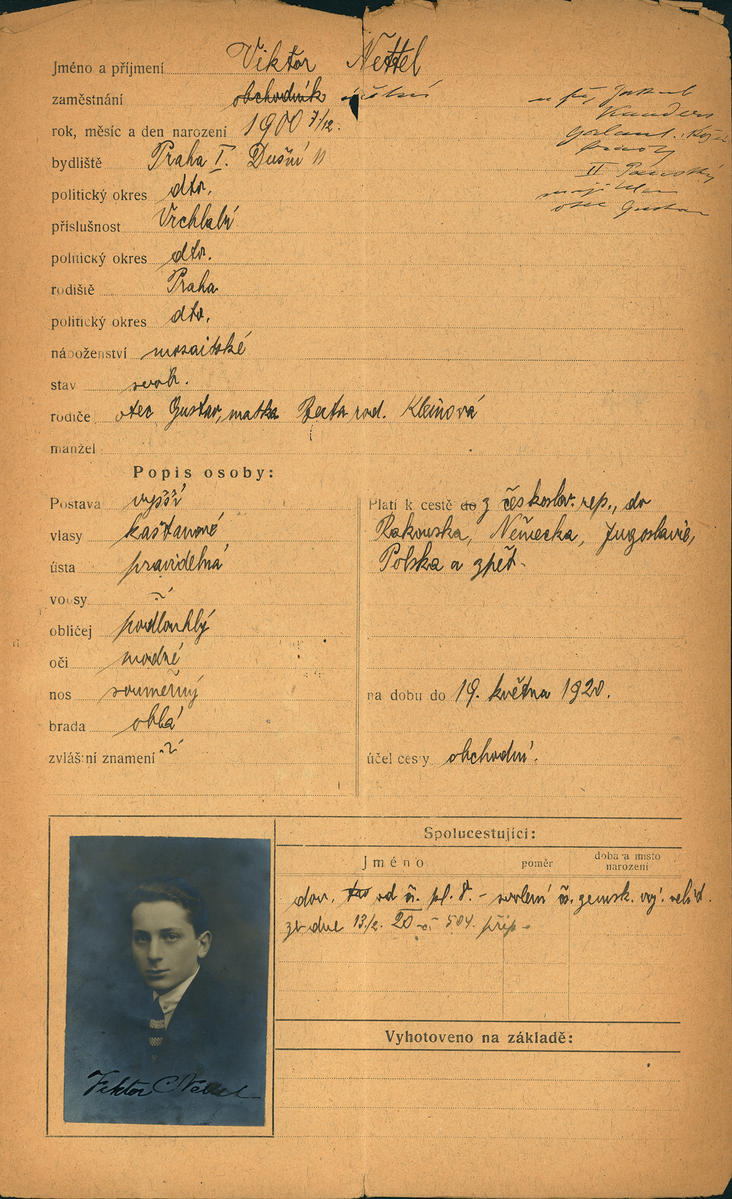 Jméno a příjmení Viktor Nettel
zaměstnání obchodník
rok, měsíc a den narození 1900 7/12.
bydliště Praha I. Dušní 11
politický okres dto.
příslušnost Vrchlabí
politický okres dto.
rodiště Praha
politický okres dto.
náboženství mosaitské
stav svob.
rodiče otec Gustav, matka Berta rod. Kleinová
manžel
u fy Jakub
Kanders
galant.
II
otec Gustav
Popis osoby:
Postava vyšší
vlasy kaštanové
ústa pravidelná
vousy
obličej podlouhlý
oči modré
nos souměrný
brada oblá
zvláštní znamení
Platí k cestě do z českoslov. rep., do
Rakouska, Německa, Jugoslavie,
Polska a zpět.
na dobu do 19. května 1920.
účel cesty obchodní.
Viktor Nettel
Spolucestující:
Jméno poměr doba a místo narození
dov. od
ze dne 13/2. 20 504
Vyhotoveno na základě: